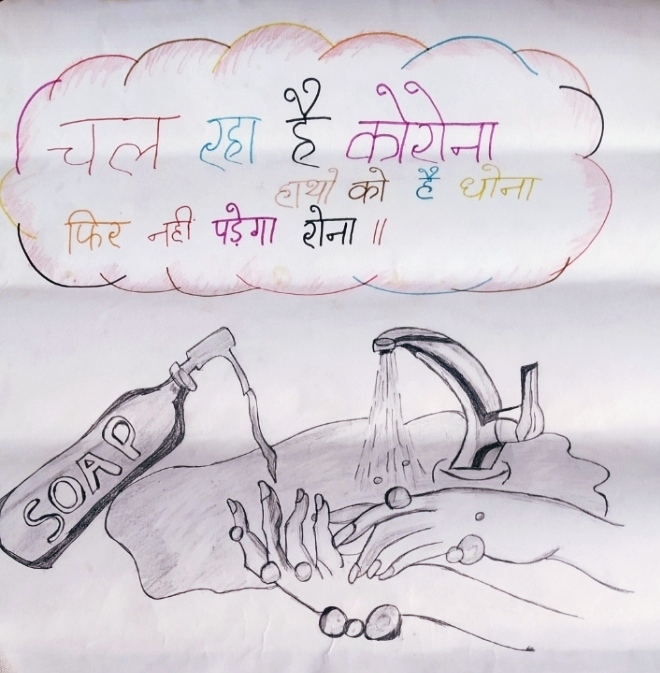 चल रहा है कोरोना
हाथो को है धोना
फिर नही पड़ेगा रोना ॥
SOAP